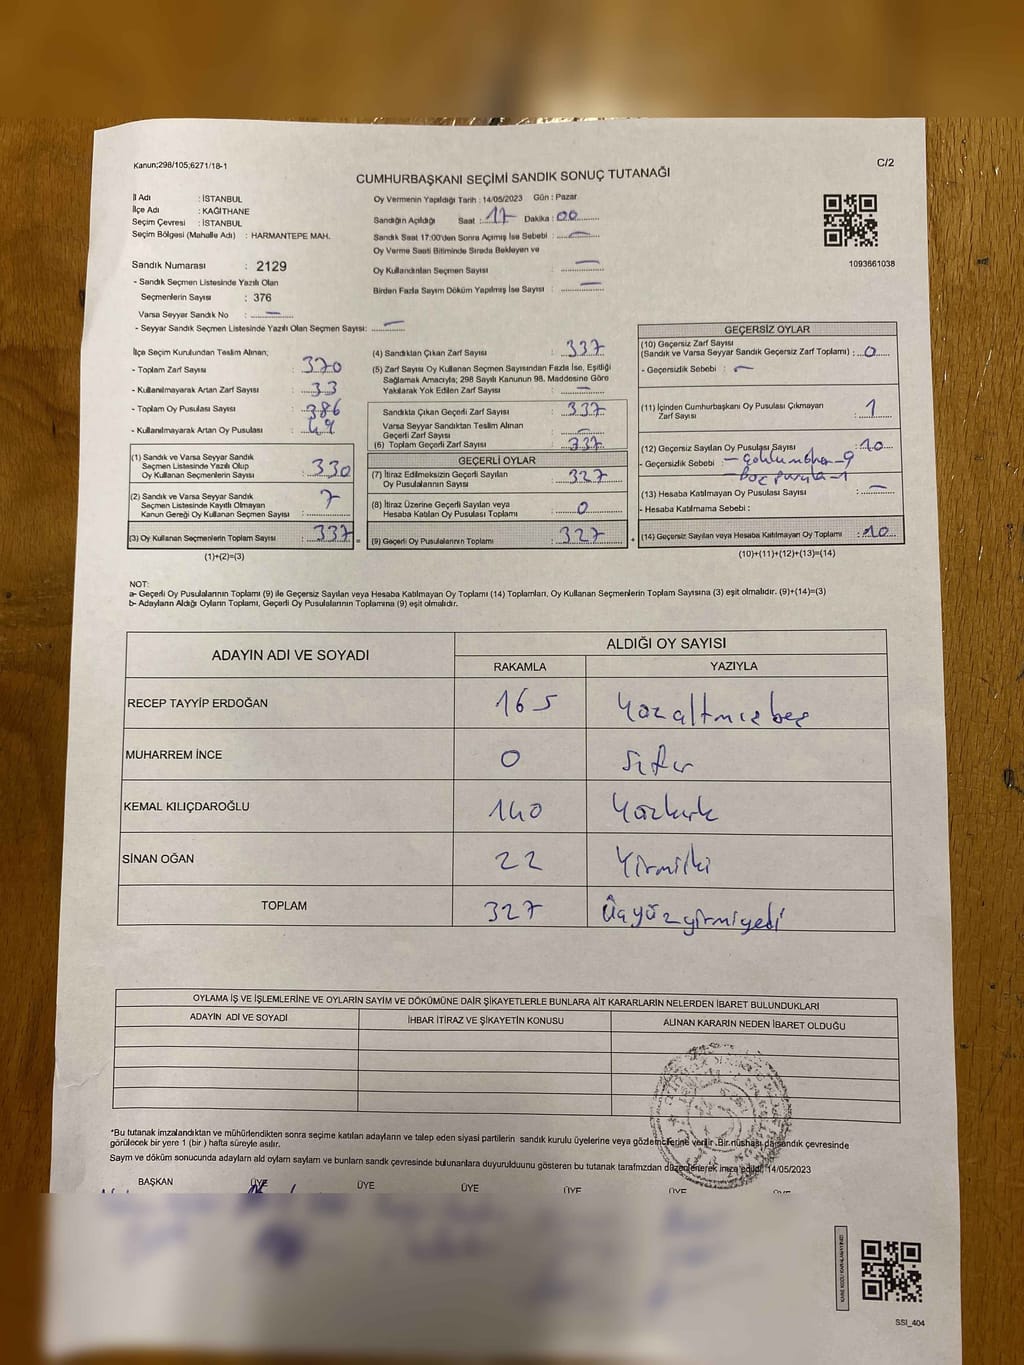 Kanun;298/105;6271/18-1
C/2
CUMHURBAŞKANI SEÇİMİ SANDIK SONUÇ TUTANAĞI
İl Adı : İSTANBUL
İlçe Adı : KAĞITHANE
Seçim Çevresi : İSTANBUL
Seçim Bölgesi (Mahalle Adı) : HARMANTEPE MAH.
Sandık Numarası : 2129
- Sandık Seçmen Listesinde Yazılı Olan
Seçmenlerin Sayısı : 376
Varsa Seyyar Sandık No : —
- Seyyar Sandık Seçmen Listesinde Yazılı Olan Seçmen Sayısı: —
Oy Vermenin Yapıldığı Tarih : 14/05/2023 Gün : Pazar
Sandığın Açıldığı Saat : 17 Dakika : 00
Sandık Saat 17:00'den Sonra Açılmış İse Sebebi : —
Oy Verme Saati Bitiminde Sırada Bekleyen ve
Oy Kullandırılan Seçmen Sayısı : —
Birden Fazla Sayım Döküm Yapılmış İse Sayısı : —
1093661038
İlçe Seçim Kurulundan Teslim Alınan;
- Toplam Zarf Sayısı : 370
- Kullanılmayarak Artan Zarf Sayısı : 33
- Toplam Oy Pusulası Sayısı : 386
- Kullanılmayarak Artan Oy Pusulası : 49
(1) Sandık ve Varsa Seyyar Sandık
Seçmen Listesinde Yazılı Olup
Oy Kullanan Seçmenlerin Sayısı : 330
(2) Sandık ve Varsa Seyyar Sandık
Seçmen Listesinde Kayıtlı Olmayan
Kanun Gereği Oy Kullanan Seçmen Sayısı : 7
(3) Oy Kullanan Seçmenlerin Toplam Sayısı : 337 =
(1)+(2)=(3)
(4) Sandıktan Çıkan Zarf Sayısı : 337
(5) Zarf Sayısı Oy Kullanan Seçmen Sayısından Fazla İse, Eşitliği
Sağlamak Amacıyla; 298 Sayılı Kanunun 98. Maddesine Göre
Yakılarak Yok Edilen Zarf Sayısı : —
Sandıkta Çıkan Geçerli Zarf Sayısı : 337
Varsa Seyyar Sandıktan Teslim Alınan
Geçerli Zarf Sayısı : —
(6) Toplam Geçerli Zarf Sayısı : 337
GEÇERLİ OYLAR
(7) İtiraz Edilmeksizin Geçerli Sayılan
Oy Pusulalarının Sayısı : 327
(8) İtiraz Üzerine Geçerli Sayılan veya
Hesaba Katılan Oy Pusulası Toplamı : 0
(9) Geçerli Oy Pusulalarının Toplamı : 327 +
GEÇERSİZ OYLAR
(10) Geçersiz Zarf Sayısı
(Sandık ve Varsa Seyyar Sandık Geçersiz Zarf Toplamı) : 0
- Geçersizlik Sebebi : —
(11) İçinden Cumhurbaşkanı Oy Pusulası Çıkmayan
Zarf Sayısı : 1
(12) Geçersiz Sayılan Oy Pusulası Sayısı : 10
- Geçersizlik Sebebi :
(13) Hesaba Katılmayan Oy Pusulası Sayısı : —
- Hesaba Katılmama Sebebi :
(14) Geçersiz Sayılan veya Hesaba Katılmayan Oy Toplamı : 10
(10)+(11)+(12)+(13)=(14)
NOT:
a- Geçerli Oy Pusulalarının Toplamı (9) ile Geçersiz Sayılan veya Hesaba Katılmayan Oy Toplamı (14) Toplamları, Oy Kullanan Seçmenlerin Toplam Sayısına (3) eşit olmalıdır. (9)+(14)=(3)
b- Adayların Aldığı Oyların Toplamı, Geçerli Oy Pusulalarının Toplamına (9) eşit olmalıdır.
ADAYIN ADI VE SOYADI
ALDIĞI OY SAYISI
RAKAMLA YAZIYLA
RECEP TAYYİP ERDOĞAN 165 Yüzaltmışbeş
MUHARREM İNCE 0 Sıfır
KEMAL KILIÇDAROĞLU 140 Yüzkırk
SİNAN OĞAN 22 Yirmiiki
TOPLAM 327 Üçyüzyirmiyedi
OYLAMA İŞ VE İŞLEMLERİNE VE OYLARIN SAYIM VE DÖKÜMÜNE DAİR ŞİKAYETLERLE BUNLARA AİT KARARLARIN NELERDEN İBARET BULUNDUKLARI
ADAYIN ADI VE SOYADI İHBAR İTİRAZ VE ŞİKAYETİN KONUSU ALINAN KARARIN NEDEN İBARET OLDUĞU
*Bu tutanak imzalandıktan ve mühürlendikten sonra seçime katılan adayların ve talep eden siyasi partilerin sandık kurulu üyelerine veya gözlemcilerine verilir. Bir nüshası da sandık çevresinde
görülecek bir yere 1 (bir ) hafta süreyle asılır.
Sayım ve döküm sonucunda adayların ald oyların sayların ve bunların sandk çevresinde bulunanlara duyurulduunu gösteren bu tutanak tarafmzdan düzenlenerek imza edildi. 14/05/2023
BAŞKAN ÜYE ÜYE ÜYE ÜYE ÜYE ÜYE
SSI_404